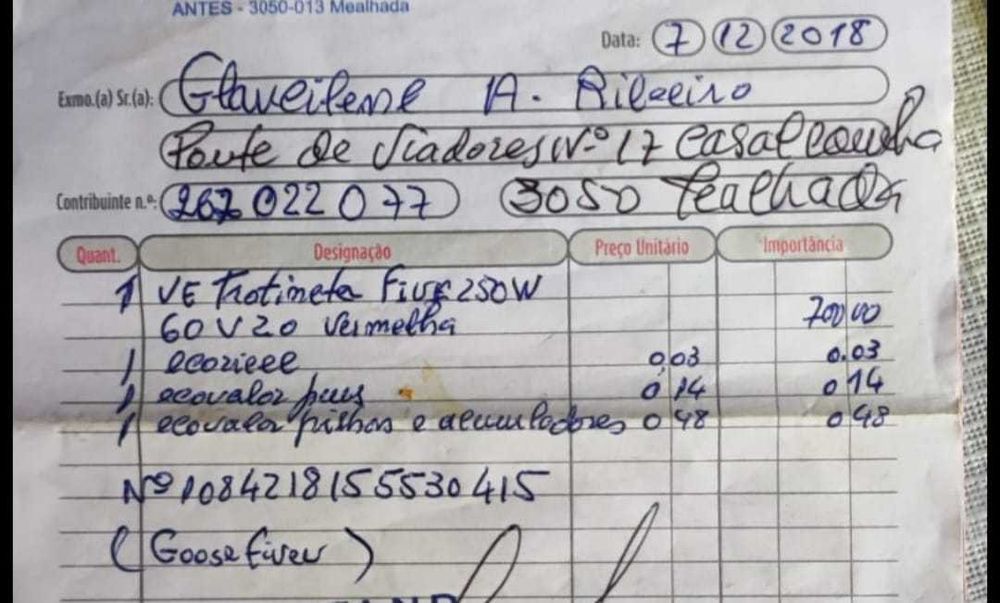 ANTES - 3050-013 Mealhada
Data: 7 12 2018
Exmo.(a) Sr.(a): Glaveilene A. Ribeiro
Ponte de Viadores Nº 17 Casal Comba
Contribuinte n.º: 267 022 077 3050 Mealhada
Quant. Designação Preço Unitário Importância
1 VE Trotineta Five 250W
60V20 Vermelha 700 00
1 ecorieee 0,03 0.03
1 ecovalor pneus 0,14 0 14
1 ecovalor pilhas e acumuladores 0 48 0 48
Nº 1084218155530415
(Goose )